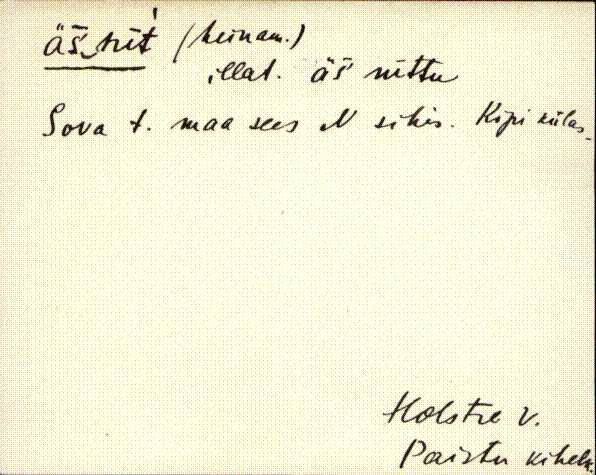 äš‿nīt́ (heinam.)
illat. äš nittu
Sova t. maa sees N sihis. Kõpi külas.
Holstre v.
Paistu kihelk.